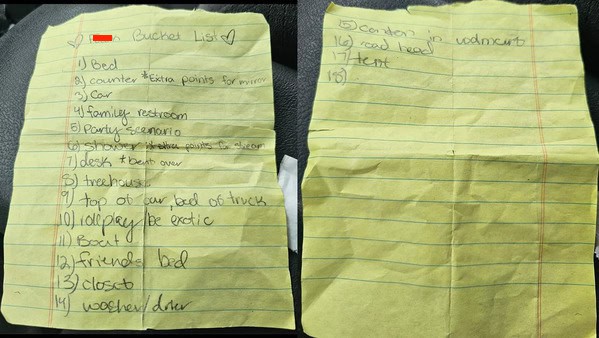 Bucket List
1) Bed
2) counter *Extra points for mirror
3) Car
4) family restroom
5) Party scenario
6) shower *extra points for steam
7) desk *bent over
8) treehouse
9) top of car, bed of truck
10) rollplay / be exotic
11) Boat
12) friends bed
13) closet
14) washer/drier
15) in
16) road head
17) tent
18)